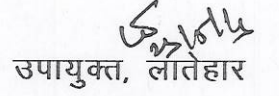 उपायुक्त, लातेहार